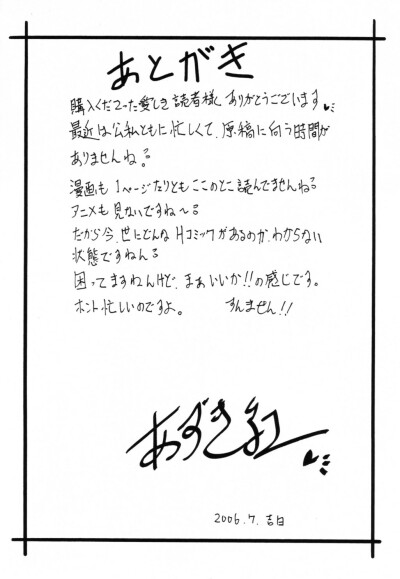 あとがき
購入くださった愛しき読者様、ありがとうございます
最近は公私ともに忙しくて、原稿に向う時間が
ありませんね。
漫画も1ページたりともここのとこ読んでませんねる
アニメも見ないですね〜る
だから今、世にどんなHコミックがあるのか、わからない
状態ですねんる
困ってますねんけど、まぁいいか!!の感じです。
ホント忙しいのですよ。 すんません!!
あずき紅
2006.7.吉日